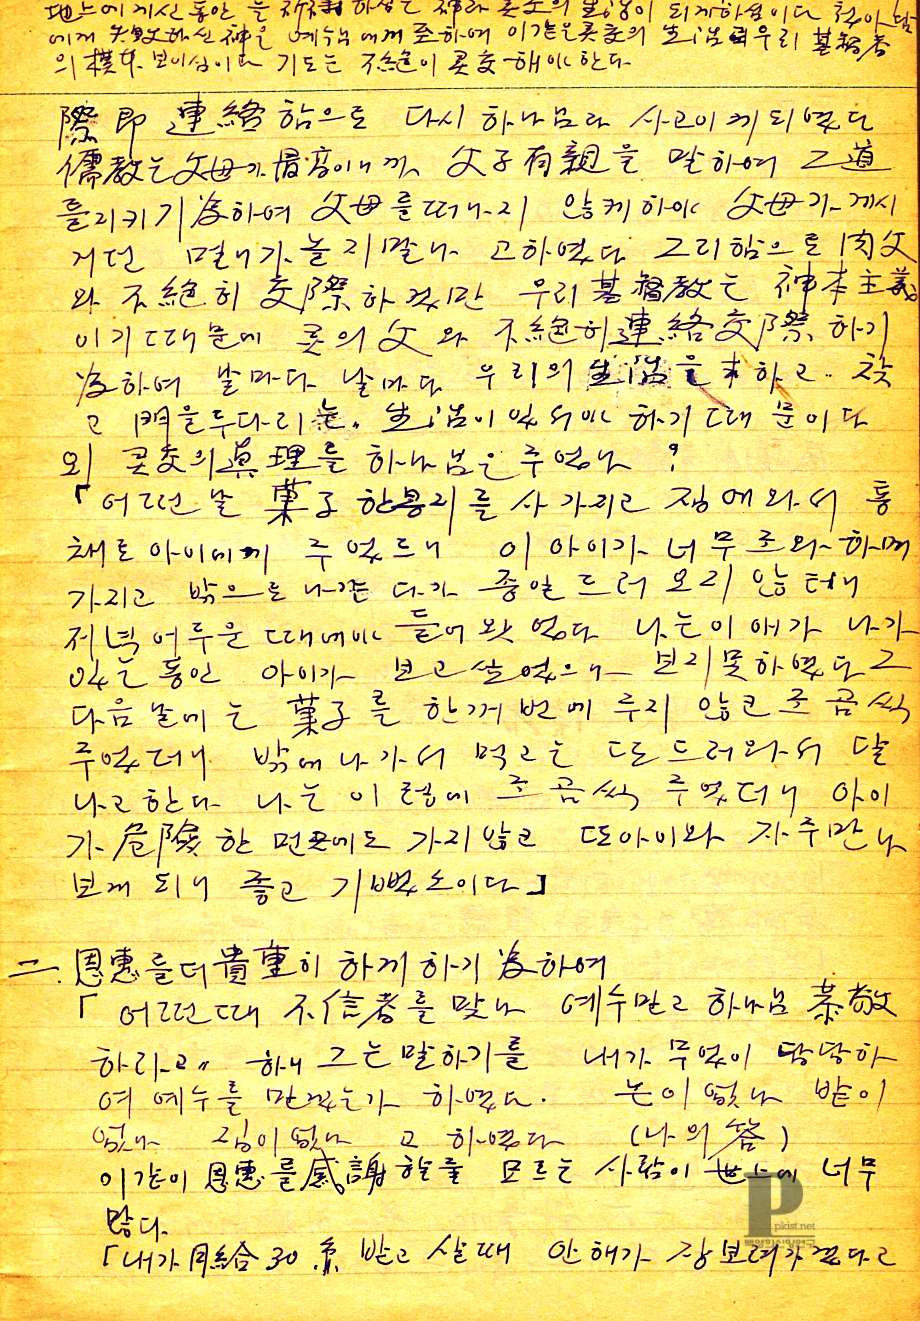 地上에 게신 동안 을 祈禱하셨
에게 失敗하신 神은 예수님에게 준하여 이같은 灵交의 生活 우리 基督者
의 模本 보이심이다 기도는 不絶이 灵交해야 한다
際 即 連絡함으로 다시 하나님과 사귀이게 되였다
儒教는 父母가 最高이니까 父子有親을 말하여 그 道
를 지키기 爲하여 父母를 떠나지 않게 하야 父母가 게시
거던 멀니가 놀지 말나 고 하였다 그리함으로 肉父
와 不絶히 交際하겠만 우리 基督教는 神本主義
이기 때문에 灵의 父와 不絶히 連絡交際하기
爲하여 날마다 날마다 우리의 生活을 求하고 찾
고 門을 두다리는 生活이 있서야 하기 때문이다
외 灵交의 眞理를 하나님은 주었나 ?
「어떤 날 菓子 한 봉지를 사가지고 집에 와서 통
채로 아이에게 주었드니 이 아이가 너무 조와하며
가지고 밖으로 나갔다가 종일 드러오지 않터니
저녁 어두운 때에야 들어왔었다 나는 이 애가 나가
있는 동안 아이가 보고 싶었으나 보지 못하였다 그
다음날에는 菓子를 한꺼번에 주지 않코 조곰씩
주었더니 밖에 나가서 먹고는 또 드러와서 달
나고 한다 나는 이럼에 조곰씩 주었더니 아이
가 危險한 먼곳에도 가지 않코 또 아이와 자주 만나
보게 되니 좋고 기뻤노이다」
二. 恩惠를 더 貴重히 하게 하기 爲하여
「어떤 때 不信者를 맞나 예수 믿고 하나님 恭敬
하라고〃 하니 그는 말하기를 내가 무엇이 답답하
여 예수를 믿겠는가 하였다. 논이 없나 밭이
없나 집이 없나 고 하였다 (나의 答)
이같이 恩惠를 感謝할줄 모르는 사람이 世上에 너무
많다.
「내가 月給 30 받고 살 때 안해가 장보려가겠다고
P
pkist.net